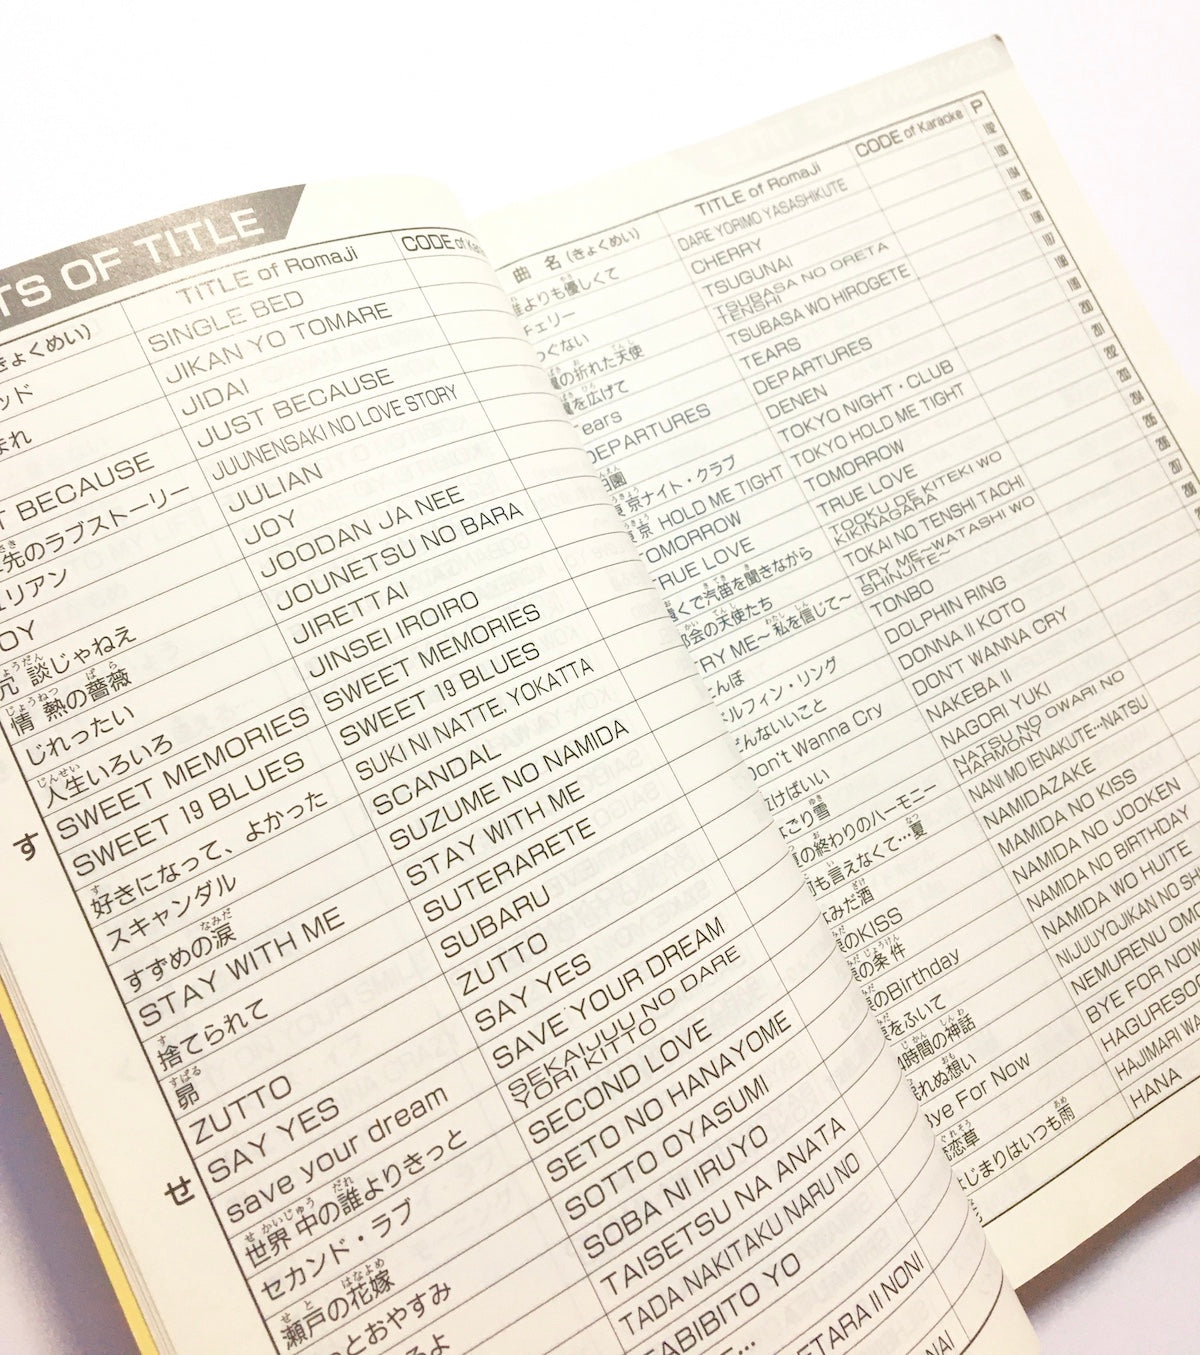 TS OF TITLE
きょくめい)
TITLE of RomaJi
CODE of Kara
ッド
SINGLE BED
まれ
JIKAN YO TOMARE
JIDAI
T BECAUSE
JUST BECAUSE
先のラブストーリー
JUUNENSAKI NO LOVE STORY
リアン
JULIAN
OY
JOY
談じゃねえ
JOODAN JA NEE
じょうねつ ばら
情熱の薔薇
JOUNETSU NO BARA
じれったい
JIRETTAI
じんせい
人生いろいろ
JINSEI IROIRO
す
SWEET MEMORIES
SWEET MEMORIES
SWEET 19 BLUES
SWEET 19 BLUES
す
好きになって、よかった
SUKI NI NATTE, YOKATTA
スキャンダル
SCANDAL
なみだ
すずめの涙
SUZUME NO NAMIDA
STAY WITH ME
STAY WITH ME
す
捨てられて
SUTERARETE
すばる
昴
SUBARU
ZUTTO
ZUTTO
せ
SAY YES
SAY YES
save your dream
SAVE YOUR DREAM
せかいじゅう だれ
世界中の誰よりきっと
SEKAIJUU NO DARE
YORI KITTO
セカンド・ラブ
SECOND LOVE
せと はなよめ
瀬戸の花嫁
SETO NO HANAYOME
っとおやすみ
SOTTO OYASUMI
るよ
SOBA NI IRUYO
TAISETSU NA ANATA
TADA NAKITAKU NARU NO
TABIBITO YO
ETARA II NONI
NAI
曲 名 (きょくめい)
TITLE of RomaJi
CODE of Karaoke
P
誰よりも優しくて
DARE YORIMO YASASHIKUTE
192
チェリー
CHERRY
193
つぐない
TSUGUNAI
194
翼の折れた天使
TSUBASA NO ORETA
TENSHI
195
翼を広げて
TSUBASA WO HIROGETE
196
Tears
TEARS
197
DEPARTURES
DEPARTURES
198
田園
DENEN
東京ナイト・クラブ
TOKYO NIGHT・CLUB
200
東京 HOLD ME TIGHT
TOKYO HOLD ME TIGHT
201
TOMORROW
TOMORROW
202
TRUE LOVE
TRUE LOVE
203
遠くで汽笛を聞きながら
TOOKU DE KITEKI WO
KIKINAGARA
204
都会の天使たち
TOKAI NO TENSHI TACHI
205
TRY ME~私を信じて~
TRY ME~WATASHI WO
SHINJITE~
206
とんぼ
TONBO
207
ドルフィン・リング
DOLPHIN RING
208
どんないいこと
DONNA II KOTO
209
Don't Wanna Cry
DON'T WANNA CRY
泣けばいい
NAKEBA II
なごり雪
NAGORI YUKI
夏の終わりのハーモニー
NATSU NO OWARI NO
HARMONY
何も言えなくて…夏
NANI MO IENAKUTE…NATSU
なみだ酒
NAMIDAZAKE
涙のKISS
MAMIDA NO KISS
涙の条件
NAMIDA NO JOOKEN
涙のBirthday
NAMIDA NO BIRTHDAY
涙をふいて
NAMIDA WO HUITE
4時間の神話
NIJUUYOJIKAN NO SHI
眠れぬ想い
NEMURENU OMO
Bye For Now
BYE FOR NOW
流恋草
HAGURESO
はじまりはいつも雨
HAJIMARI WA
HANA